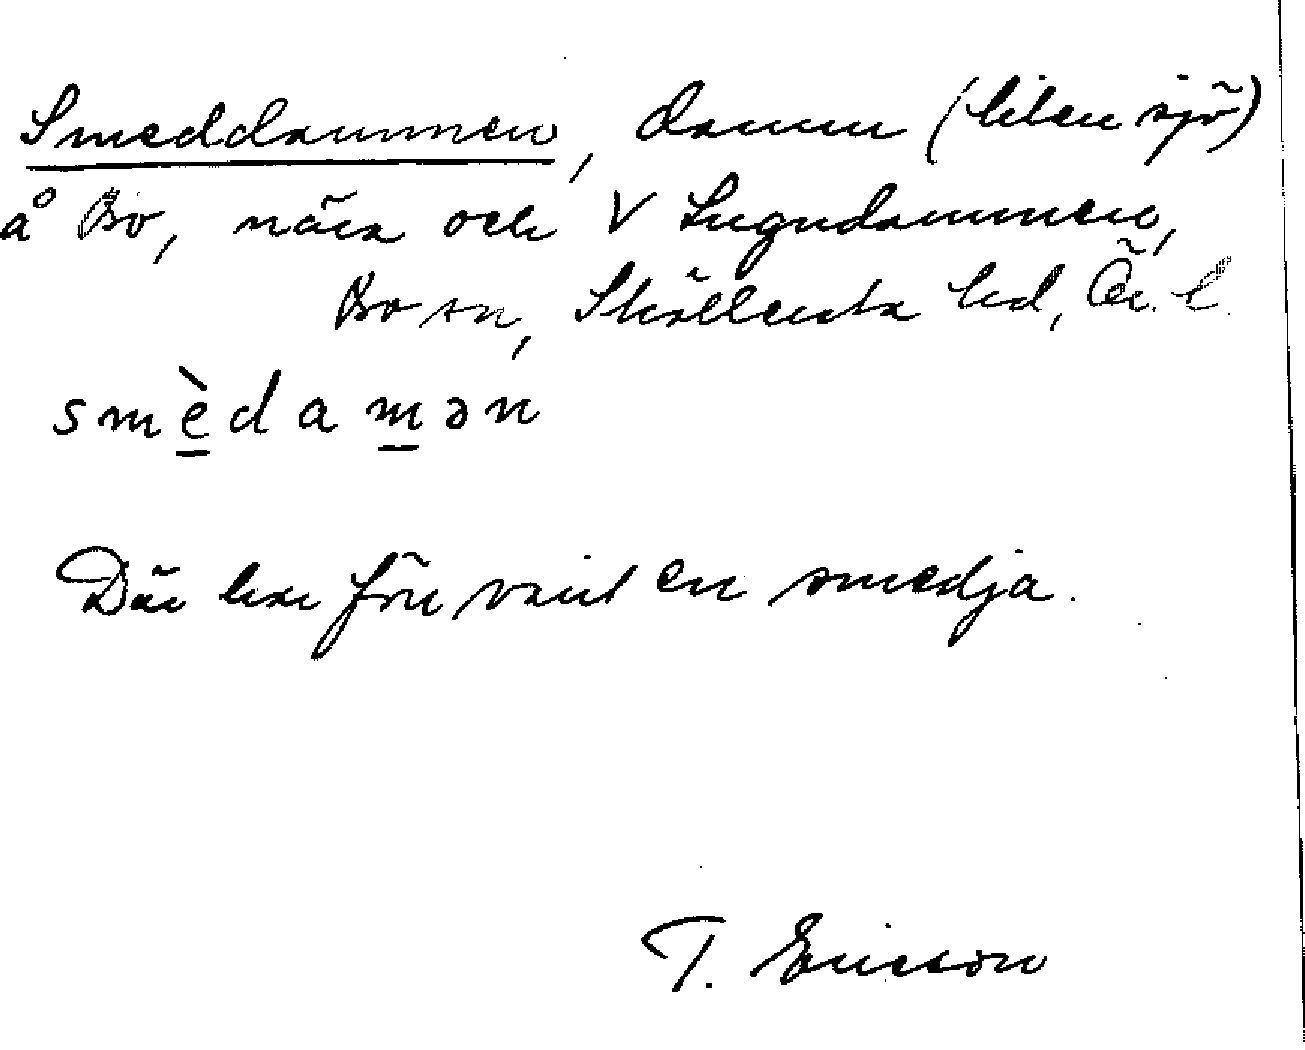 Smeddammen, damm (liten sjö)
å Bo, nära och V Lugndammen,
Bo sn, Sköllersta hd, Ör. l.
smèdamən
Där har förr varit en smedja.
T. Ericson